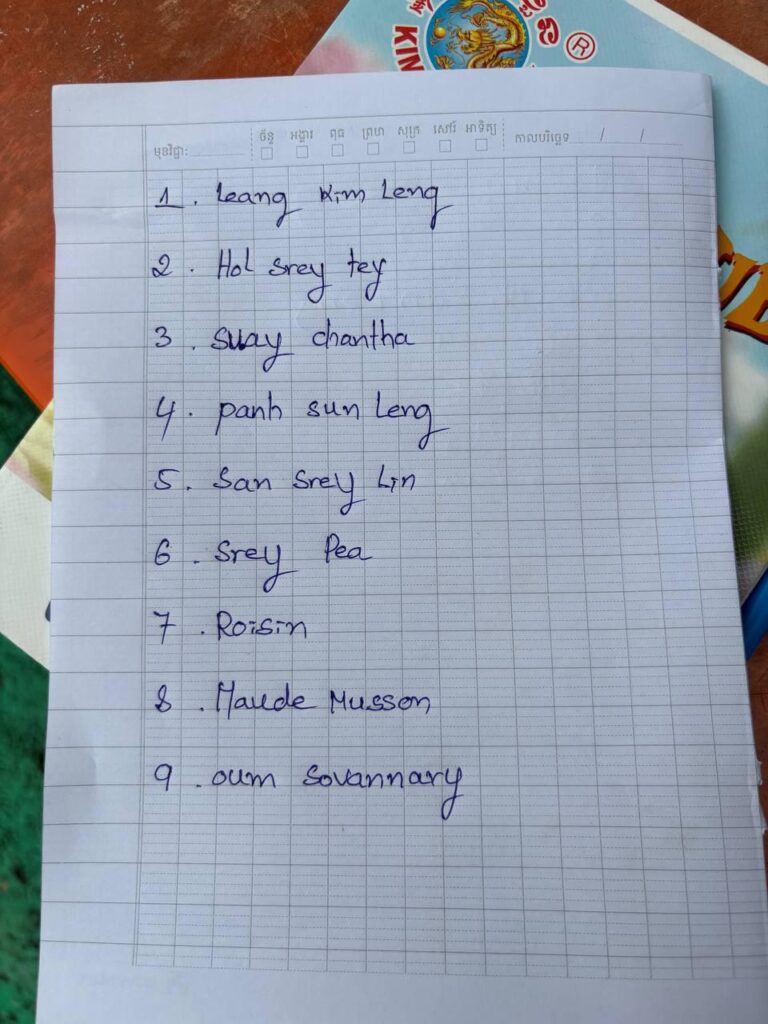 KIN
®
មុខវិជ្ជា:
ច័ន្ទ អង្គារ ពុធ ព្រហ សុក្រ សៅរ៍ អាទិត្យ
កាលបរិច្ឆេទ / /
1. Leang Kim Leng
2. Hol Srey tey
3. Suay chantha
4. panh sun Leng
5. San Srey Lin
6. Srey Pea
7. Roisin
8. Maude Musson
9. oum Sovannary